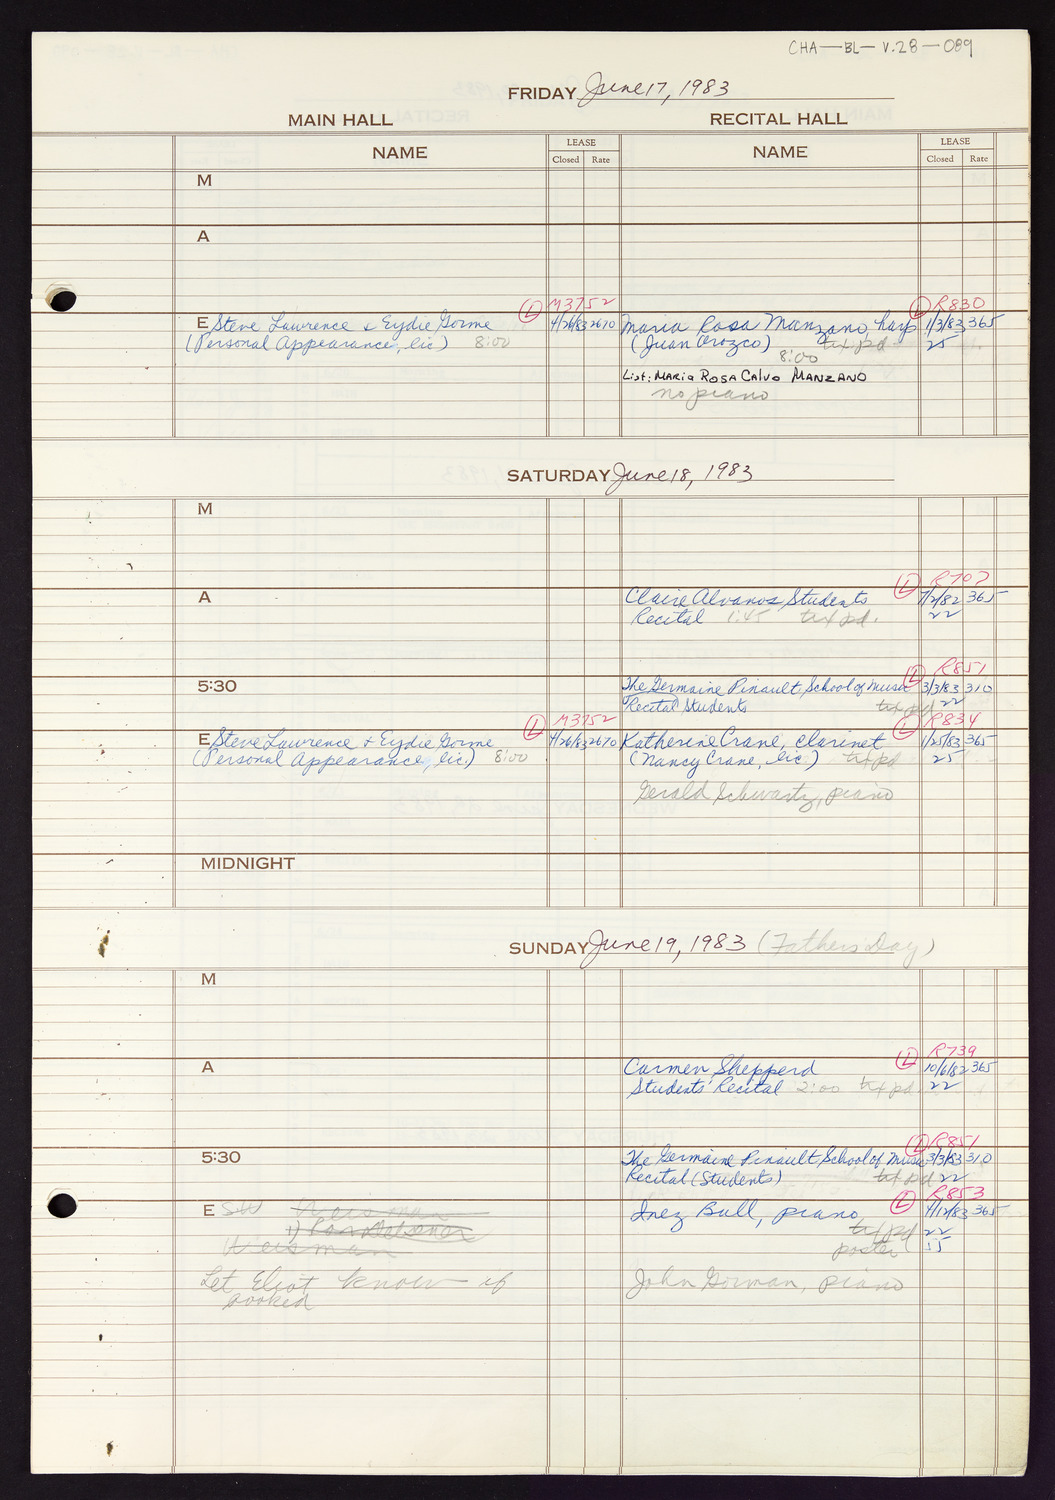 CHA-BL-V.28-089
FRIDAY June 17, 1983
MAIN HALL RECITAL HALL
NAME LEASE Closed Rate NAME LEASE Closed Rate
M
A
L M3752 L R830
E Steve Lawrence & Eydie Gorme 4/26/83 2670 Maria Rosa Manzano, harp 1/3/83 365
(Personal Appearance, lic) 8:00 (Juan Orozco) tix pd 25
8:00
List: MARIA ROSA CALVO MANZANO
no piano
SATURDAY June 18, 1983
M
L R707
A Claire Alvanos Students 7/2/82 365
Recital 1:45 tix pd. 22
L R851
5:30 The Germaine Pinault School of Music 3/3/83 310
Recital Students tix pd 22
L M3752 L R834
E Steve Lawrence + Eydie Gorme 4/26/83 2670 Katherine Crane, clarinet 1/25/83 365
(Personal Appearance, lic) 8:00 (Nancy Crane, lic) tix pd 25
Gerald Schwartz, piano
MIDNIGHT
SUNDAY June 19, 1983 (Fathers Day)
M
L R739
A Carmen Shepperd 10/6/82 365
Students' Recital 2:00 tix pd 22
L R851
5:30 The Germaine Pinault School of Music 3/3/83 310
Recital (Students) tix pd 22
L R853
E SW Weisman Inez Bull, piano 4/12/83 365
tix pd 22
Weisman poster 55
Let Eliot know if John Gorman, piano
booked